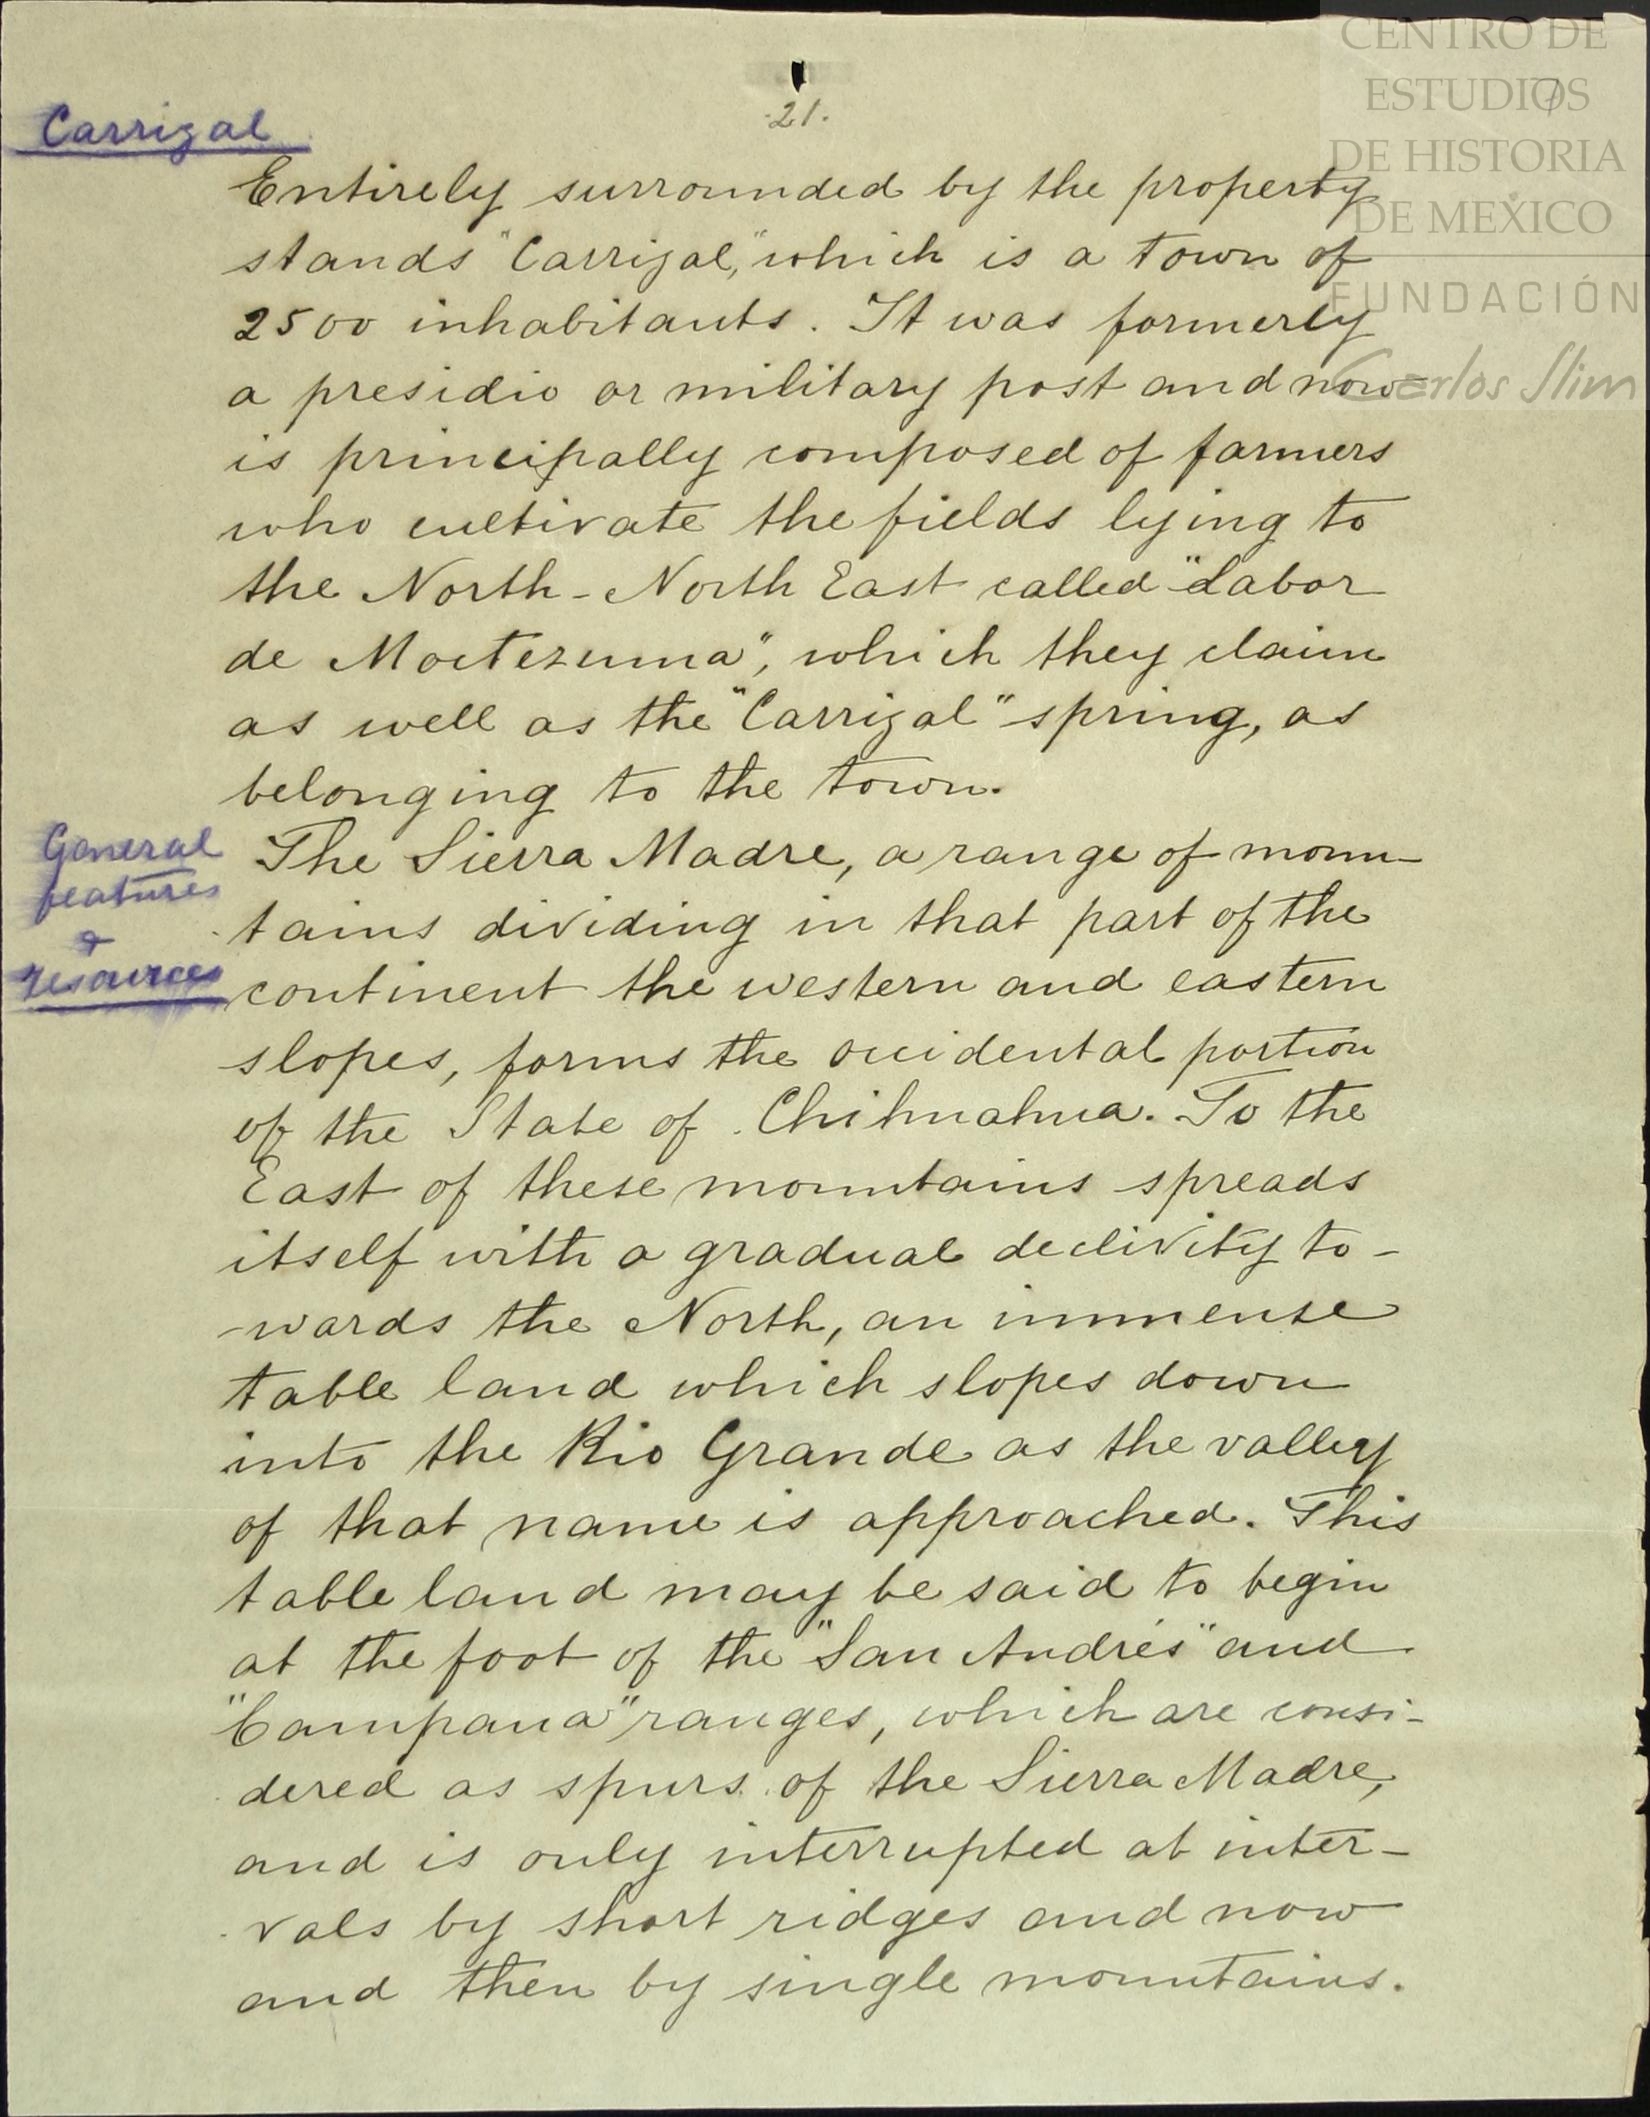 CENTRO DE
ESTUDIOS
DE HISTORIA
DE MEXICO
FUNDACIÓN
Carlos Slim
21.
7
Carrizal
Entirely surrounded by the property
stands "Carrizal," which is a town of
2500 inhabitants. It was formerly
a presidio or military post and now
is principally composed of farmers
who cultivate the fields lying to
the North-North East called "Labor
de Moctezuma", which they claim
as well as the "Carrizal" spring, as
belonging to the town.
General
features
&
resources
The Sierra Madre, a range of moun-
tains dividing in that part of the
continent the western and eastern
slopes, forms the occidental portion
of the State of Chihuahua. To the
East of these mountains spreads
itself with a gradual declivity to-
-wards the North, an immense
table land which slopes down
into the Rio Grande as the valley
of that name is approached. This
table land may be said to begin
at the foot of the "San Andrés" and
"Campana" ranges, which are consi-
dered as spurs of the Sierra Madre,
and is only interrupted at inter-
vals by short ridges and now
and then by single mountains.